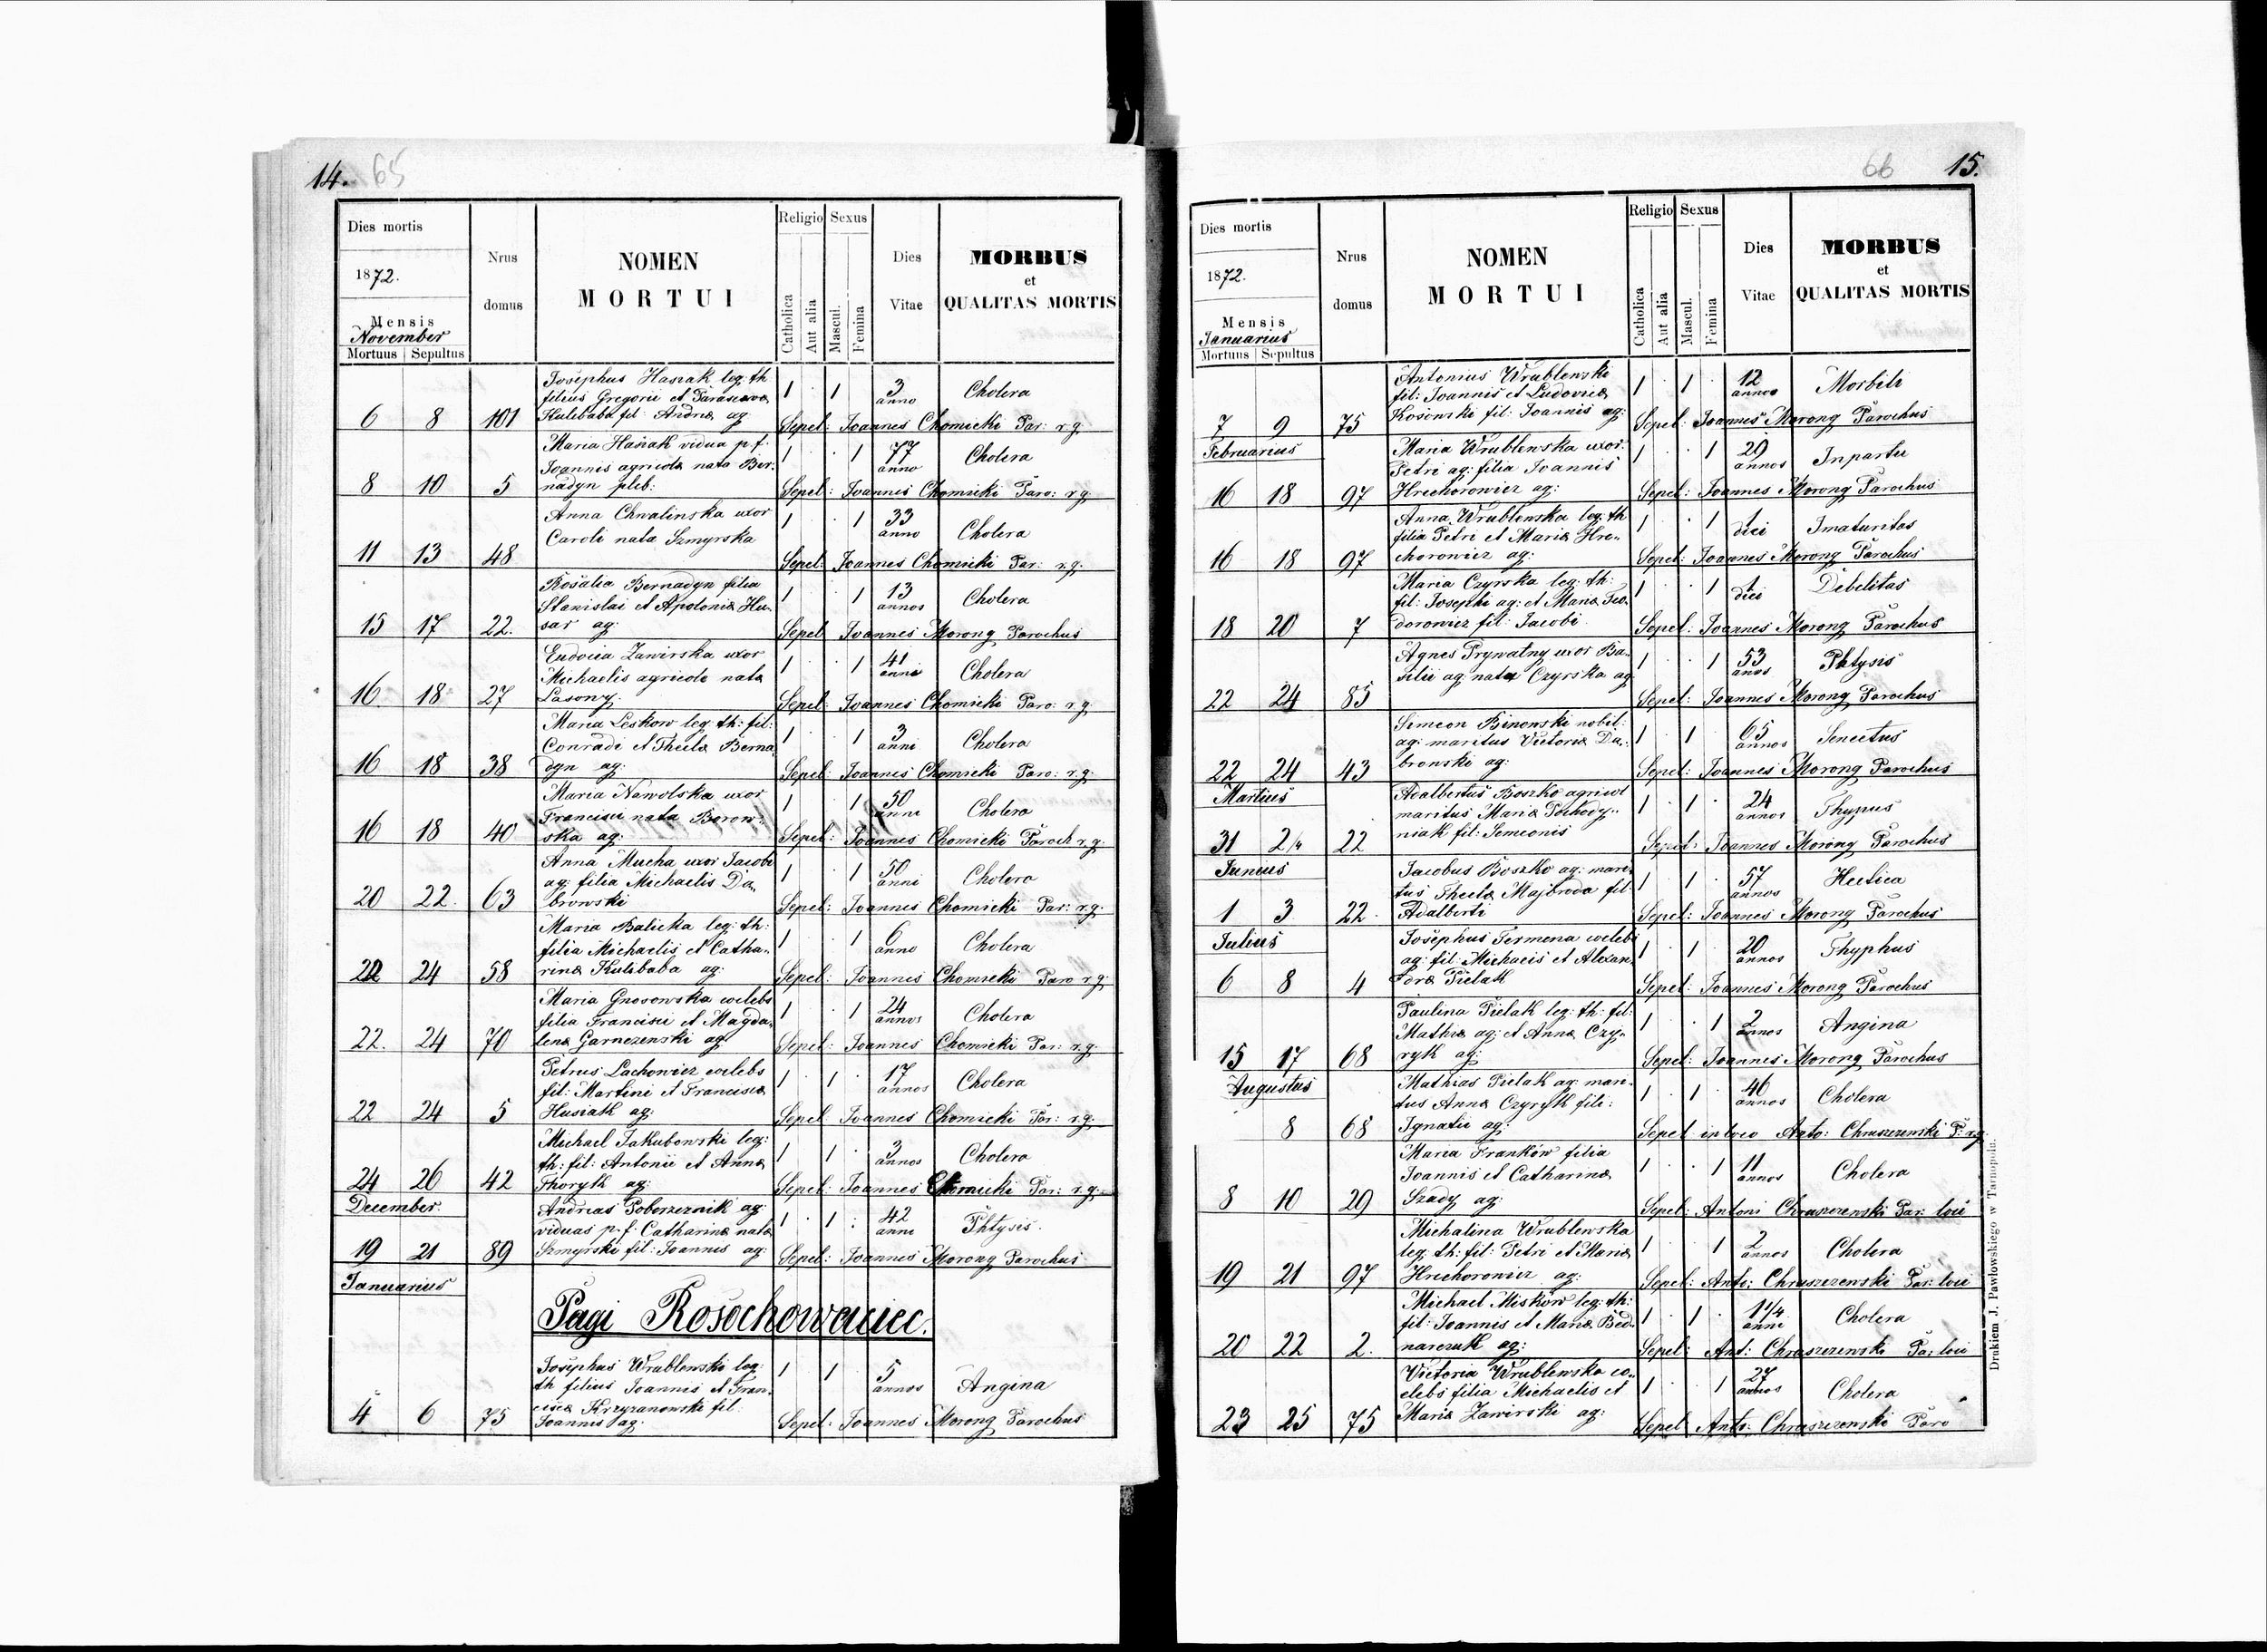 14. 65
Dies mortis
1872.
Mensis
November
Mortuus Sepultus
Nrus
domus
NOMEN
MORTUI
Religio Sexus
Catholica
Aut alia
Mascul.
Femina
Dies
Vitae
MORBUS
et
QUALITAS MORTIS
Josephus Hasiak leg: th
filius Gregorii et Parascevæ
Kulebaba fil: Andreæ ag
6 8 101
1 . 1 3 anno Cholera
Sepel: Joannes Chomicki Par: r.g.
Maria Hanak vidua p. f.
Joannis agricolæ nata Ber
nadyn pleb:
8 10 5
1 . . 1 77 anno Cholera
Sepel: Joannes Chomicki Paro: r.g.
Anna Chwalinska uxor
Caroli nata Szmyrska
11 13 48
1 . . 1 33 anno Cholera
Sepel: Joannes Chomicki Par: r.g.
Rosalia Bernadyn filia
Stanislai et Apoloniæ Hu-
sar ag:
15 17 22.
1 . . 1 13 annos Cholera
Sepel Joannes Morong Parochus
Eudocia Zawirska uxor
Michaelis agricolæ nata
Lasowy.
16. 18 27
1 . . 1 41 anni Cholera
Sepel: Joannes Chomicki Paro: r.g.
Maria Leskow leg th: fil:
Conradi et Theclæ Berna
dyn ag:
16 18 38
1 . . 1 3 anni Cholera
Sepel: Joannes Chomicki Paro: r.g.
Maria Nawolska uxor
Francisci nata Borow-
ska ag:
16 18 40
1 . 1 50 anni Cholera
Sepel: Joannes Chomicki Paroch r.g.
Anna Mucha uxor Jacobi
ag: filia Michaelis Da-
browski
20 22. 63
1 . . 1 50 anni Cholera
Sepel: Joannes Chomicki Par: r.g.
Maria Balicka leg: th:
filia Michaelis et Catha-
rinæ Kulibaba ag:
22 24 58
1 . . 1 6 anno Cholera
Sepel: Joannes Chomicki Paro r.g.
Maria Gnosowska coelebs
filia Francisci et Magda-
lenæ Garnczenski ag
22. 24 70
1 . 1 24 annos Cholera
Sepel: Joannes Chomicki Par: r.g.
Petrus Lachowicz coelebs
fil: Martini et Franciscæ
Husiak ag:
22 24 5
1 . 1 . 17 annos Cholera
Sepel Joannes Chomicki Par: r.g.
Michael Jakubowski leg:
th: fil: Antonii et Annæ
Thoryk ag:
24 26 42
1 . 1 . 3 annos Cholera
Sepel: Joannes Chomicki Par: r.g.
December.
Andreas Poborzeznik ag:
viduus p. f. Catharinæ nata
Szmyrski fil: Joannis ag:
19 21 89
1 . 1 . 42 anni Phtysis.
Sepel: Joannes Morong Parochus
Januarius
Pagi Rosochowaciec.
Josephus Wrublewski leg:
th filius Joannis et Fran-
ciscæ Krzyzanowski fil:
Joannis ag:
4 6 75
1 1 5 annos Angina
Sepel: Joannes Morong Parochus
66 15.
Dies mortis
1872.
Mensis
Januarius
Mortuus Sepultus
Nrus
domus
NOMEN
MORTUI
Religio Sexus
Catholica
Aut alia
Mascul.
Femina
Dies
Vitae
MORBUS
et
QUALITAS MORTIS
Antonius Wrublewski
fil: Joannis et Ludovicæ
Kosowski fil: Joannis ag:
7 9 75
1 . 1 . 12 annos Morbili
Sepel: Joannes Morong Parochus
Februarius
Maria Wrublewska uxor
Petri ag: filia Joannis
Hrechorowicz ag:
16 18 97
1 . 1 29 annos Inpartu
Sepel: Joannes Morong Parochus
Anna Wrublewska leg: th
filia Petri et Mariæ Hre-
chorowicz ag:
16 18 97
1 . . 1 1 diei Imaturitas
Sepel: Joannes Morong Parochus
Maria Czyrska leg: th:
fil: Josephi ag: et Mariæ Teo-
dorowicz fil: Jacobi
18 20 7
1 . . 1 1 diei Debelitas
Sepel: Joannes Morong Parochus
Agnes Prywatny uxor Ba-
silii ag: nata Czyrska ag
22 24 85
1 . . 1 53 anos Phtysis
Sepel: Joannes Morong Parochus
Simeon Binowski nobil:
ag: maritus Victoriæ Da-
browski ag:
22 24 43
1 . 1 . 65 annos Senectus
Sepel: Joannes Morong Parochus
Martius
Adalbertus Boszko agricol
maritus Mariæ Pochody-
niak fil: Semeonis
31 2/4 22
1 . 1 . 24 annos Thypus
Sepel: Joannes Morong Parochus
Junius
Jacobus Boszko ag: mari-
tus Theclæ Majbroda fil
Adalberti
1 3 22.
1 . 1 . 57 annos Hectica
Sepel: Joannes Morong Parochus
Julius
Josephus Termena coelebs
ag: fil: Michaeis et Alexan-
dræ Pielak
6 8 4
1 . 1 . 20 annos Thyphus
Sepel: Joannes Morong Parochus
Paulina Pielak leg: th: fil:
Mathiæ ag: et Annæ Czy-
ryk ag:
15 17 68
1 . . 1 2 annos Angina
Sepel: Joannes Morong Parochus
Augustus
Mathias Pielak ag: mari-
tus Annæ Czyryk fili:
Ignatii ag:
8 68
1 . 1 . 46 annos Cholera
Sepel in loco Anto: Chruszczewski P: r.g.
Maria Franków filia
Joannis et Catharinæ
Szady ag:
8 10 29
1 . . 1 11 annos Cholera
Sepel: Antoni Chruszczewski Par: loci
Michalina Wrublewska
leg. th: fil: Petri et Mariæ
Hrichorowicz ag:
19 21 97
1 . 1 2 annos Cholera
Sepel: Ant: Chruszczewski Par: loci
Michael Miskow leg: th:
fil: Joannis et Mariæ Bed-
narczuk ag:
20 22 2.
1 . 1 . 1 1/4 anni Cholera
Sepel: Ant: Chruszczewski Par loci
Victoria Wrublewska co-
elebs filia Michaelis et
Mariæ Zawirski ag:
23 25 75
1 . 1 27 annos Cholera
Sepel Ant: Chruszczewski Paro
Drukiem J. Pawłowskiego w Tarnopolu.